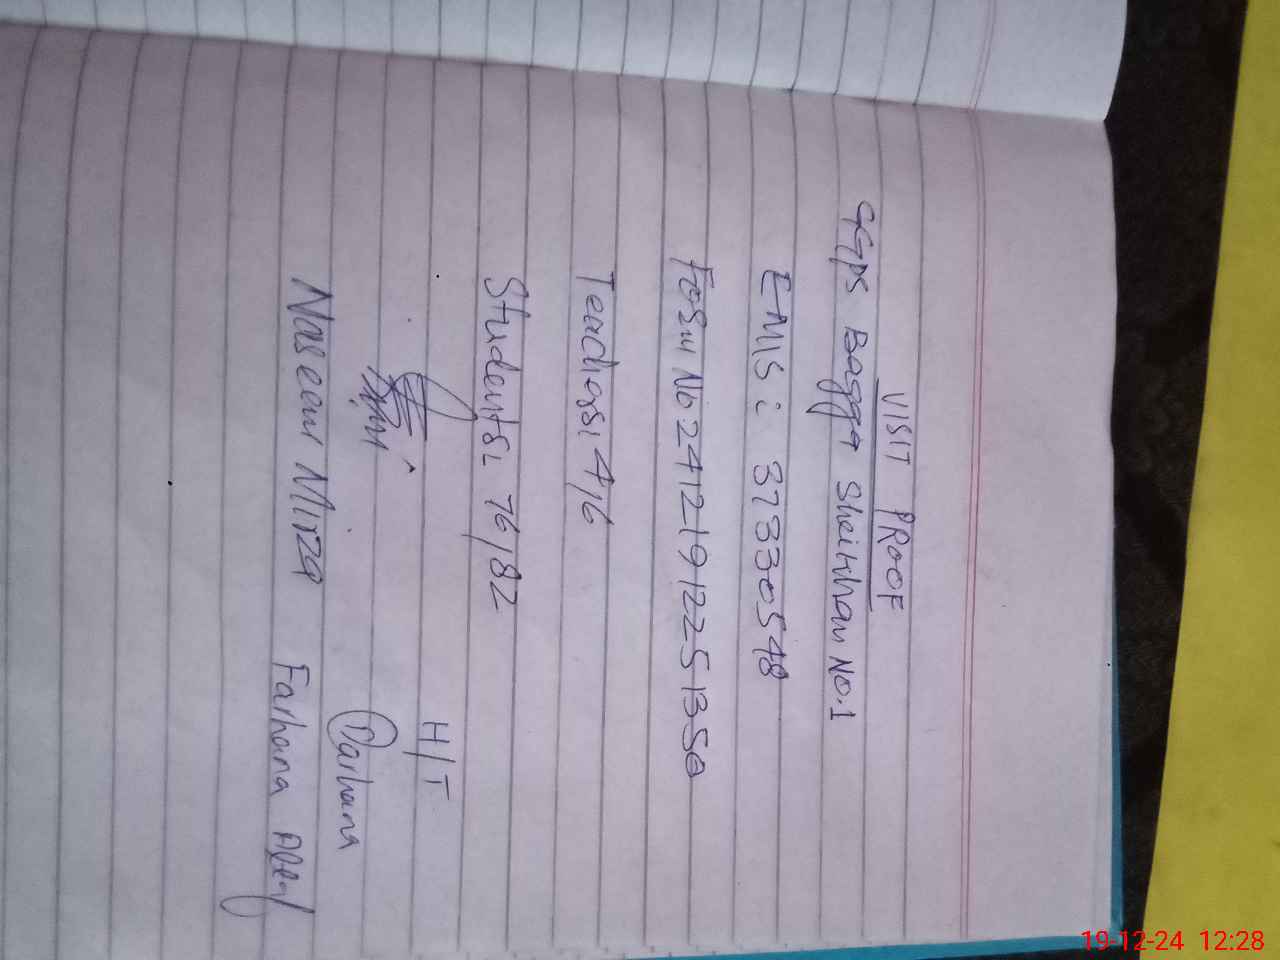 VISIT PROOF
GGPS Bagga Sheikhan No.1
EMIS : 37330548
Form No 24121912251350
Teachers: 4/6
Students: 76/82
H/T
Farhana
Naseem Mirza Farhana
19-12-24 12:28